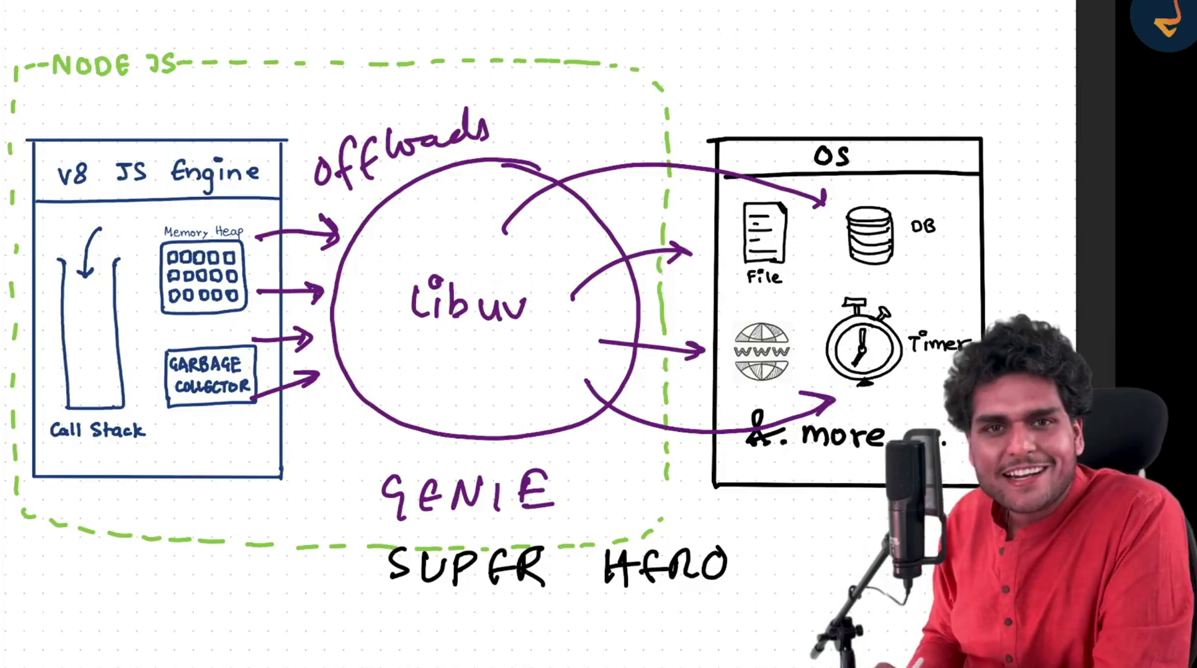 NODE JS
V8 JS Engine
Memory Heap
GARBAGE
COLLECTOR
Call Stack
offloads
Libuv
GENIE
SUPER HERO
OS
File
DB
WWW
Timer
&. more